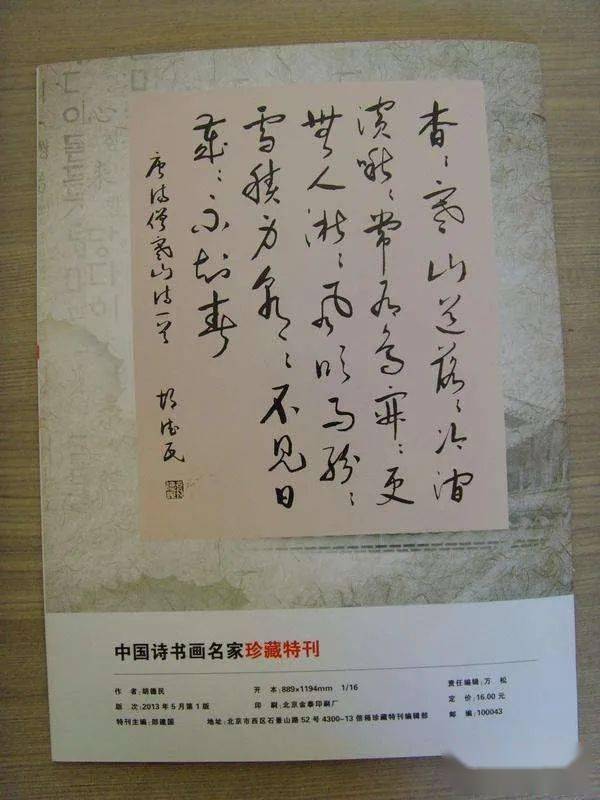 杳〻寒山道落〻冷澗
濱啾〻常有鳥寂〻更
無人淅〻風吹面紛〻
雪積身朝〻不見日
歲〻不知春
唐詩僧寒山詩一首
胡德民
中国诗书画名家珍藏特刊
作 者:胡德民 开 本:889×1194mm 1/16 责任编辑:万 松
版 次:2013年5月第1版 印 刷:北京金泰印刷厂 定 价:16.00元
特刊主编:建国 地址:北京市西区石景山路52号4300-13信箱珍藏特刊编辑部 邮 编:100043